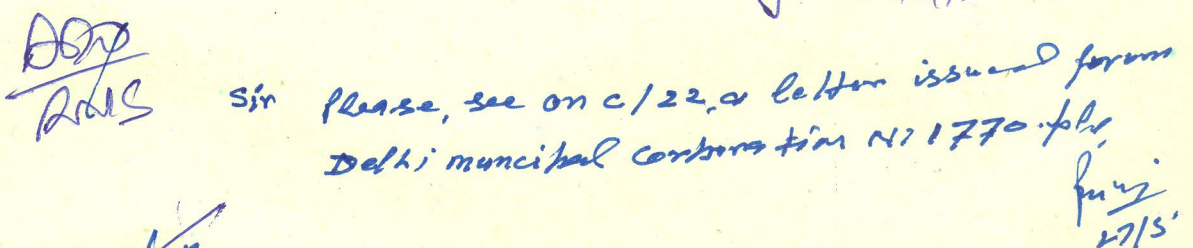 Sir Please, see on c/22, a letter issued forum
Delhi muncipal corporation N. 1770 .plz,
27/5